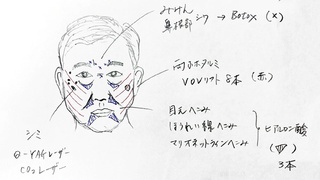 みけん
鼻根部 シワ → Botox (×)
両ホホタルミ
VOVリフト 8本 (赤)
目元へこみ
ほうれい線へこみ
マリオネットラインへこみ
ヒアルロン酸
3本
シミ
YAGレーザー
CO₂レーザー